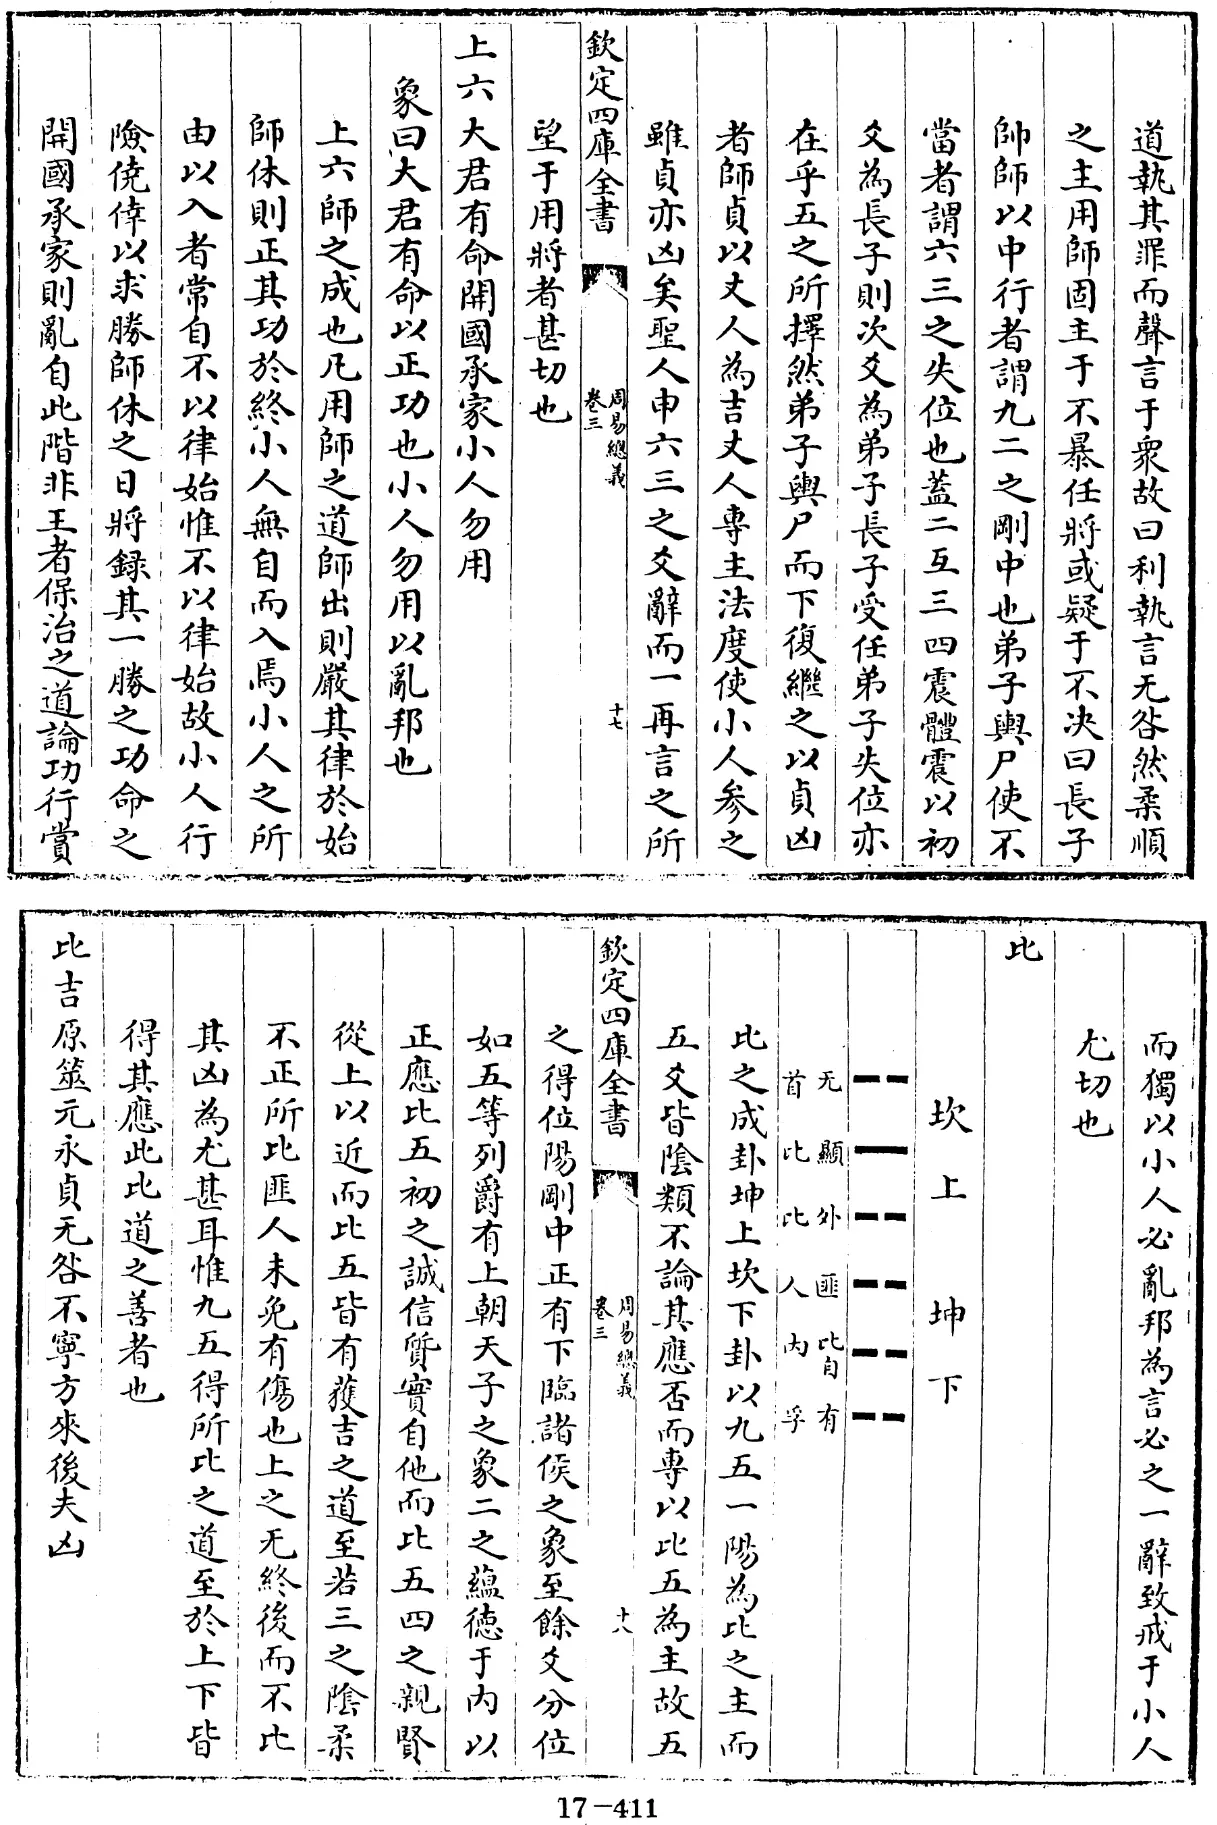 道執其罪而聲言于衆故曰利執言无咎然柔順
之主用師固主于不暴任將或疑于不决曰長子
帥師以中行者謂九二之剛中也弟子輿尸使不
當者謂六三之失位也蓋二互三四震體震以初
爻為長子則次爻為弟子長子受任弟子失位亦
在乎五之所擇然弟子輿尸而下復繼之以貞凶
者師貞以丈人為吉丈人專主法度使小人参之
雖貞亦凶矣聖人申六三之爻辭而一再言之所
欽定四庫全書
周易總義
卷三
十七
望于用將者甚切也
上六大君有命開國承家小人勿用
象曰大君有命以正功也小人勿用以亂邦也
上六師之成也凡用師之道師出則嚴其律於始
師休則正其功於終小人無自而入焉小人之所
由以入者常自不以律始惟不以律始故小人行
險僥倖以求勝師休之日將録其一勝之功命之
開國承家則亂自此階非王者保治之道論功行賞
而獨以小人必亂邦為言必之一辭致戒于小人
尤切也
比
坎上 坤下
无首
顯比
外比
匪人
比自内
有孚
比之成卦坤上坎下卦以九五一陽為比之主而
五爻皆陰類不論其應否而專以比五為主故五
欽定四庫全書
周易總義
卷三
十八
之得位陽剛中正有下臨諸侯之象至餘爻分位
如五等列爵有上朝天子之象二之蘊德于内以
正應比五初之誠信質實自他而比五四之親賢
從上以近而比五皆有獲吉之道至若三之陰柔
不正所比匪人未免有傷也上之无終後而不比
其凶為尤甚耳惟九五得所比之道至於上下皆
得其應此比道之善者也
比吉原筮元永貞无咎不寧方來後夫凶
17-411